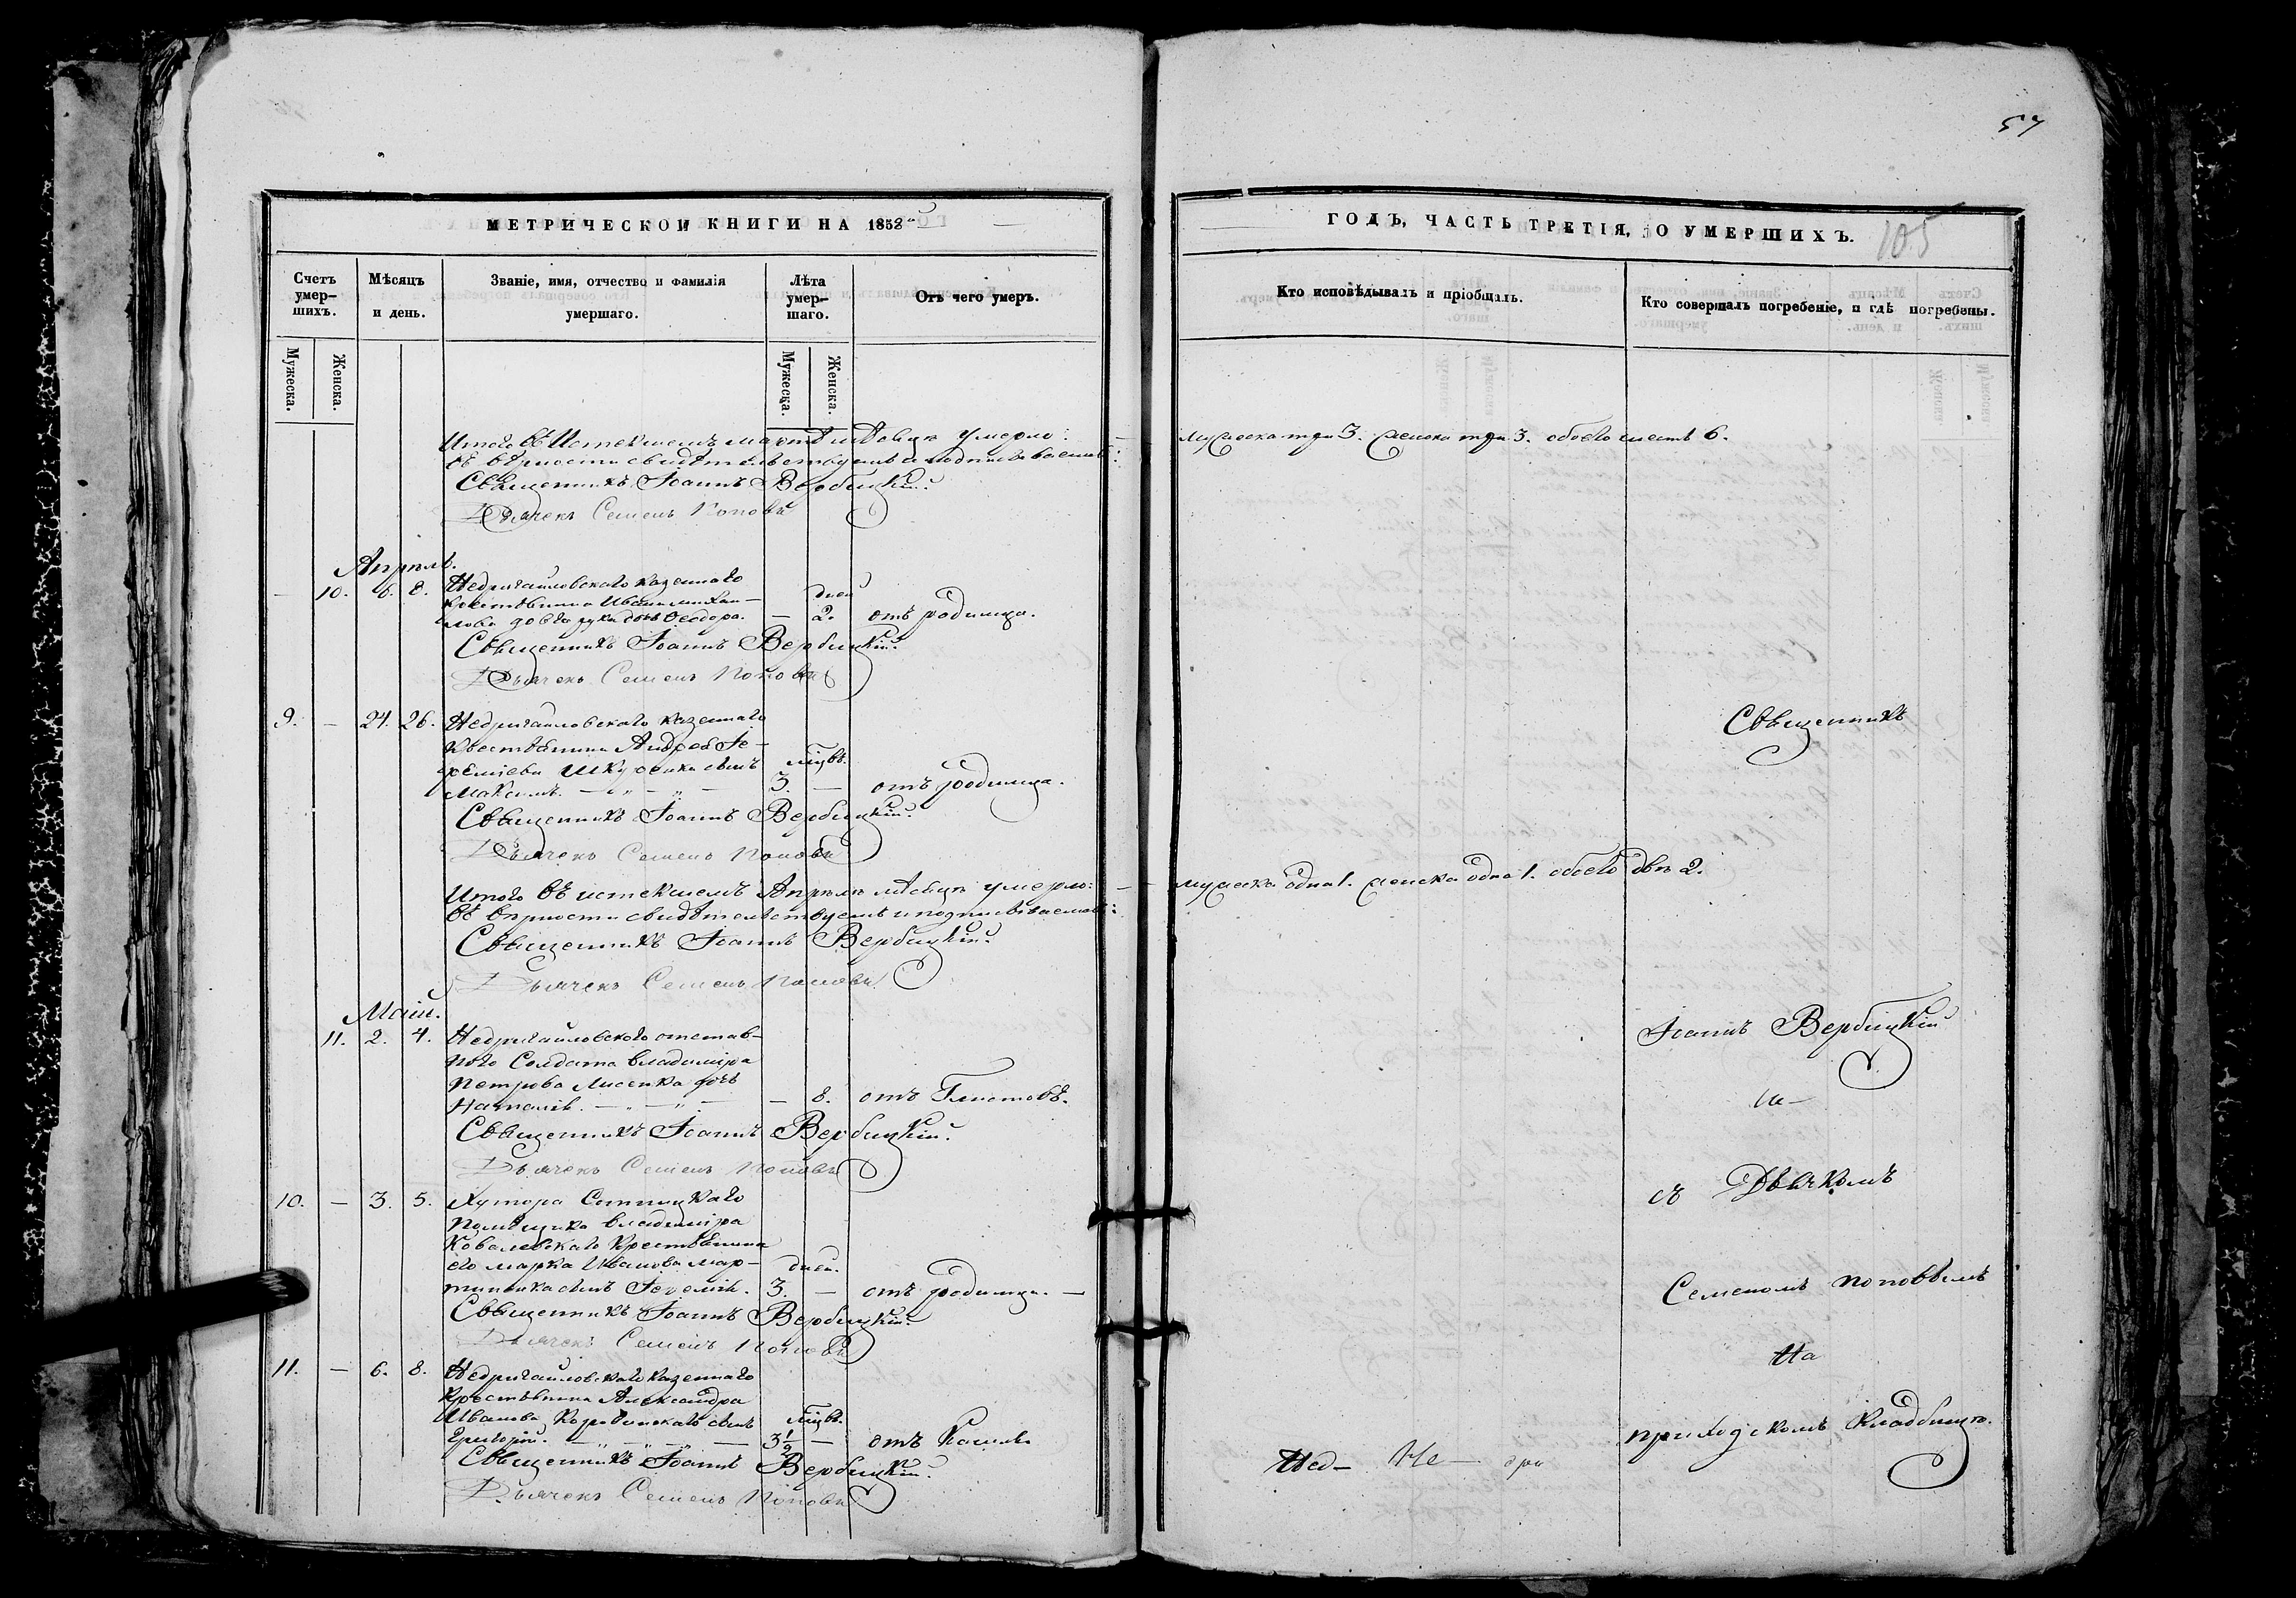 57
МЕТРИЧЕСКОЙ КНИГИ НА 1858й
ГОДЪ, ЧАСТЬ ТРЕТІЯ, О УМЕРШИХЪ.
105
Счетъ умер-шихъ.
Мѣсяцъ и день.
Званіе, имя, отчество и фамилія умершаго.
Лѣта умер-шаго.
Отъ чего умеръ.
Кто исповѣдывалъ и пріобщалъ.
Кто совершалъ погребеніе, и гдѣ погребены.
Мужеска.
Женска.
Мужеска.
Женска.
Итого въ Истекшемъ мартѣ мѣсяцѣ умерло: — мужеска три 3. женска три 3. обоего шесть 6.
въ вѣрности свидѣтельствуемъ и подписываемся:
Священникъ Іоаннъ Вербицкій.
Дьячекъ Семенъ Поповъ
Апрѣль.
— 10. 6. 8. Недригайловскаго казеннаго
крестьянина Ивана Михай- дней
лова дочь Ѳеодора. — 2. отъ родимца.
Священникъ Іоаннъ Вербицкій.
Дьячекъ Семенъ Поповъ
9. — 24. 26. Недригайловскаго казеннаго
крестьянина Андрея Іе-
реміева Шкуренка сынъ мѣцъ.
Максимъ. — „ — „ — 3. — отъ родимца.
Священникъ Іоаннъ Вербицкій.
Дьячекъ Семенъ Поповъ
Итого въ истекшемъ Апрѣлѣ мѣсяцѣ умерло: — мужеска одинъ 1. женска одна 1. обоего двѣ 2.
въ вѣрности свидѣтельствуемъ и подписываемся:
Священникъ Іоаннъ Вербицкій.
Дьячекъ Семенъ Поповъ
Маій.
11. 2. 4. Недригайловскаго отстав-
ного Солдата Владиміра
Петрова Лисенка дочь
Наталія. — „ — „ — — 8. отъ Глистовъ.
Священникъ Іоаннъ Вербицкій.
Дьячекъ Семенъ Поповъ
10. — 3. 5. Хутора Сотницкаго
Помѣщика Владиміра
Ковалевскаго Крестьянина
его Марка Иванова Мар- дней.
тиненка сынъ Іеремія. 3. — отъ родимца. —
Священникъ Іоаннъ Вербицкій.
Дьячекъ Семенъ Поповъ
11. — 6. 8. Недригайловскаго казеннаго
Крестьянина Александра
Иванова сынъ мѣцъ.
Григорій. — „ — „ — 3½ — отъ Кашля
Священникъ Іоаннъ Вербицкій.
Дьячекъ Семенъ Поповъ
Священникъ
Іоаннъ Вербицкій
съ Дьячкомъ
Семеномъ Поповымъ
На
приходскомъ Кладбищѣ.
Нед-